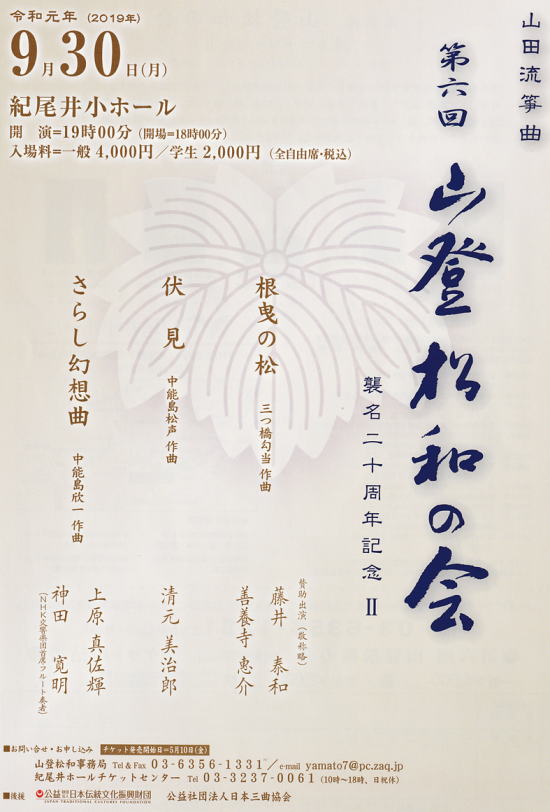 山田流箏曲
第六回 山登松和の会
襲名二十周年記念 Ⅱ
令和元年 (2019年)
9月30日(月)
紀尾井小ホール
開 演=19時00分(開場=18時00分)
入場料=一般 4,000円/学生 2,000円(全自由席・税込)
根曳の松 三つ橋勾当 作曲
伏見 中能島松声 作曲
さらし幻想曲 中能島欣一 作曲
賛助出演(敬称略)
藤井 泰和
善養寺 惠介
清元 美治郎
上原 真佐輝
神田 寛明
(NHK交響楽団首席フルート奏者)
■お問い合せ・お申し込み チケット発売開始日=5月10日(金)
山登松和事務局 Tel & Fax 03-6356-1331/e-mail yamato7@pc.zaq.jp
紀尾井ホールチケットセンター Tel 03-3237-0061(10時〜18時、日祝休)
■後援 公益財団法人日本伝統文化振興財団 公益社団法人日本三曲協会
JAPAN TRADITIONAL CULTURES FOUNDATION